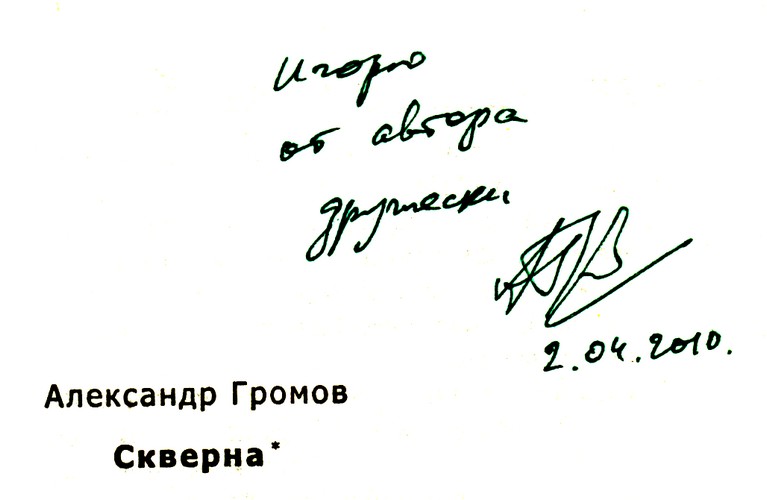 Игорю
от автора
дружески
2.04.2010.
Александр Громов
Скверна*